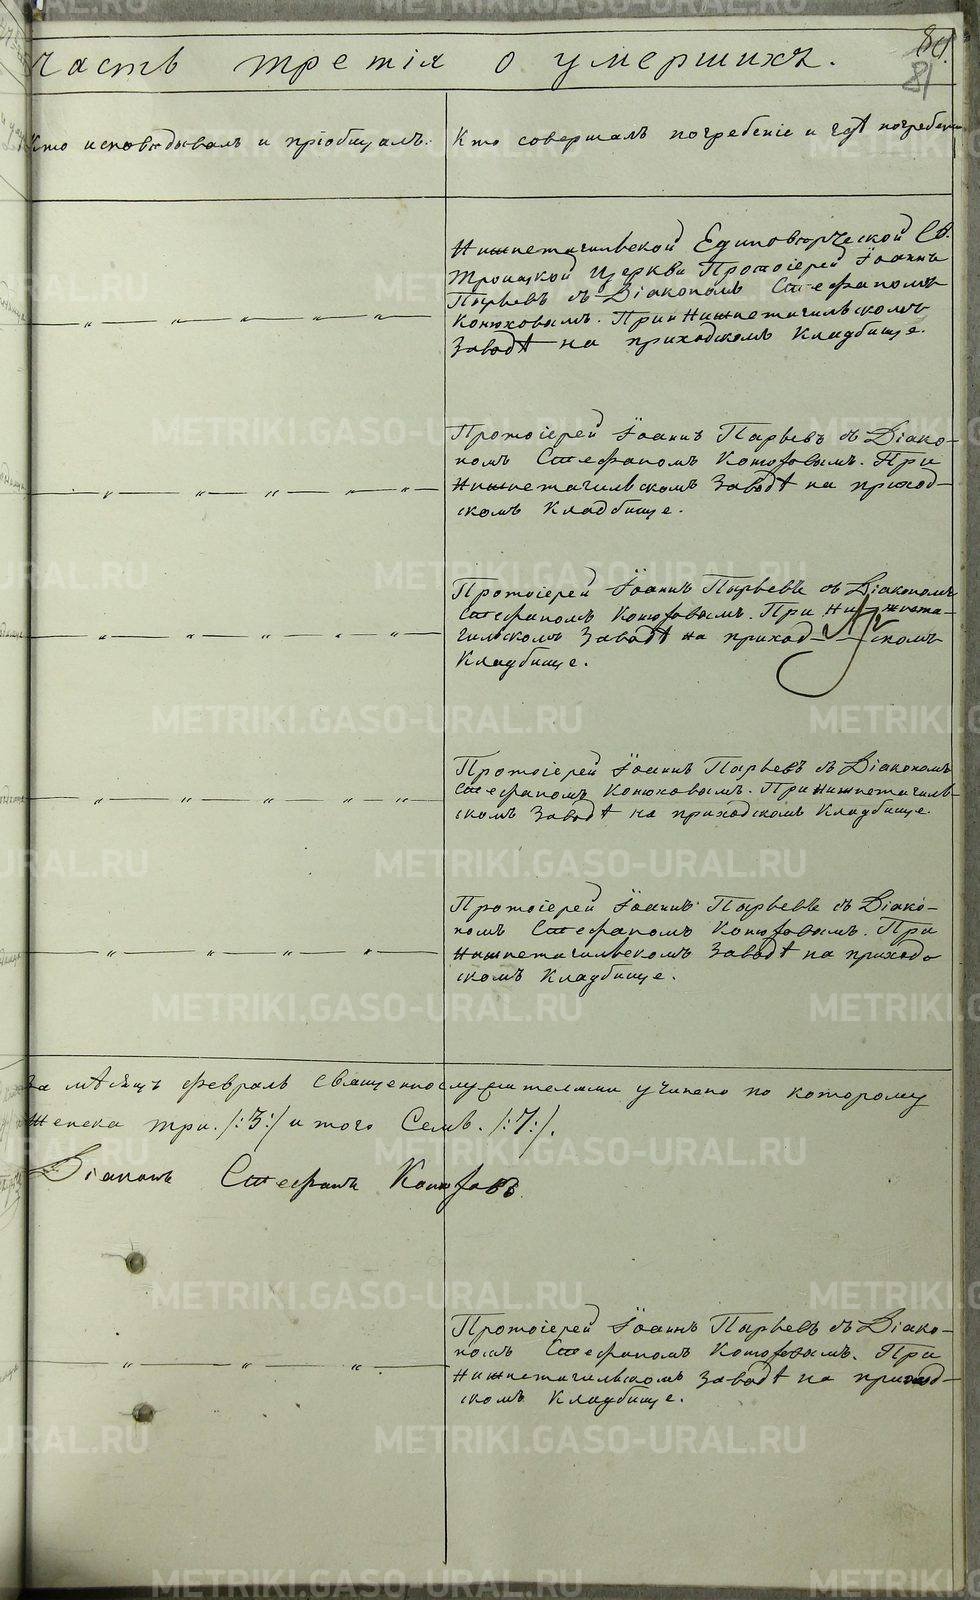 80.
81
Часть третія о умершихъ.
Кто исповѣдывалъ и пріобщалъ.
Кто совершалъ погребеніе и гдѣ погребены
Нижнетагильской Единовѣрческой Св.
Троицкой Церкви Протоіерей Іоаннъ
Пырьевъ съ Діакономъ Стефаномъ
Конюховымъ. При Нижнетагильскомъ
Заводѣ на приходскомъ Кладбище.
— „ — „ — „ — „ — „ —
Протоіерей Іоаннъ Пырьевъ съ Діако-
номъ Стефаномъ Конюховымъ. При
Нижнетагильскомъ Заводѣ на приход-
скомъ Кладбище.
— „ — „ — „ — „ — „ —
Протоіерей Іоаннъ Пырьевъ съ Діакономъ
Стефаномъ Конюховымъ. При Нижнета-
гильскомъ Заводѣ на приход- скомъ
Кладбище.
— „ — „ — „ — „ — „ —
Протоіерей Іоаннъ Пырьевъ съ Діакономъ
Стефаномъ Конюховымъ. При Нижнетагиль-
скомъ Заводѣ на приходскомъ Кладбище.
— „ — „ — „ — „ — „ —
Протоіерей Іоаннъ Пырьевъ съ Діако-
номъ Стефаномъ Конюховымъ. При
Нижнетагильскомъ Заводѣ на приход-
скомъ Кладбище.
— „ — „ — „ — „ — „ —
За мѣсяцъ февраль священнослужителями учинено по которому
женска три. /:3:/ и того Семь. /:7:/.
Діаконъ Стефанъ Конюховъ
Протоіерей Іоаннъ Пырьевъ съ Діако-
номъ Стефаномъ Конюховымъ. При
Нижнетагильскомъ Заводѣ на приход-
скомъ Кладбище.
„ — „ — „ —
METRIKI.GASO-URAL.RU